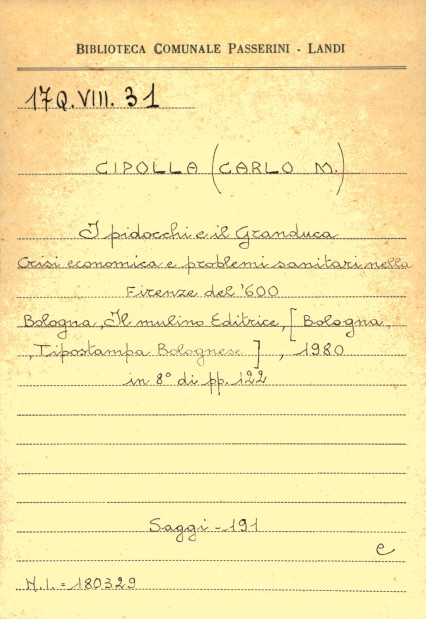 BIBLIOTECA COMUNALE PASSERINI - LANDI
17Q.VIII.31
CIPOLLA (CARLO M.)
I pidocchi e il Granduca
Crisi economica e problemi sanitari nella
Firenze del '600
Bologna, Il mulino Editrice, [Bologna,
, Tipostampa Bolognese], 1980
in 8° di pp. 122
Saggi - 191
e
N.I. = 180329